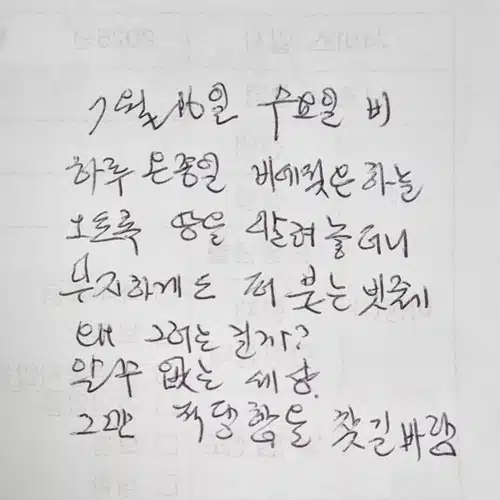 7월 16일 수요일 비
하루 온종일 비에젖은 하늘
오도록 땅을 말려놓더니
무지하게도 퍼 붓는 빗줄기
왜 그러는 건가?
알수 없는 세상.
그만 적당함을 찾길 바램